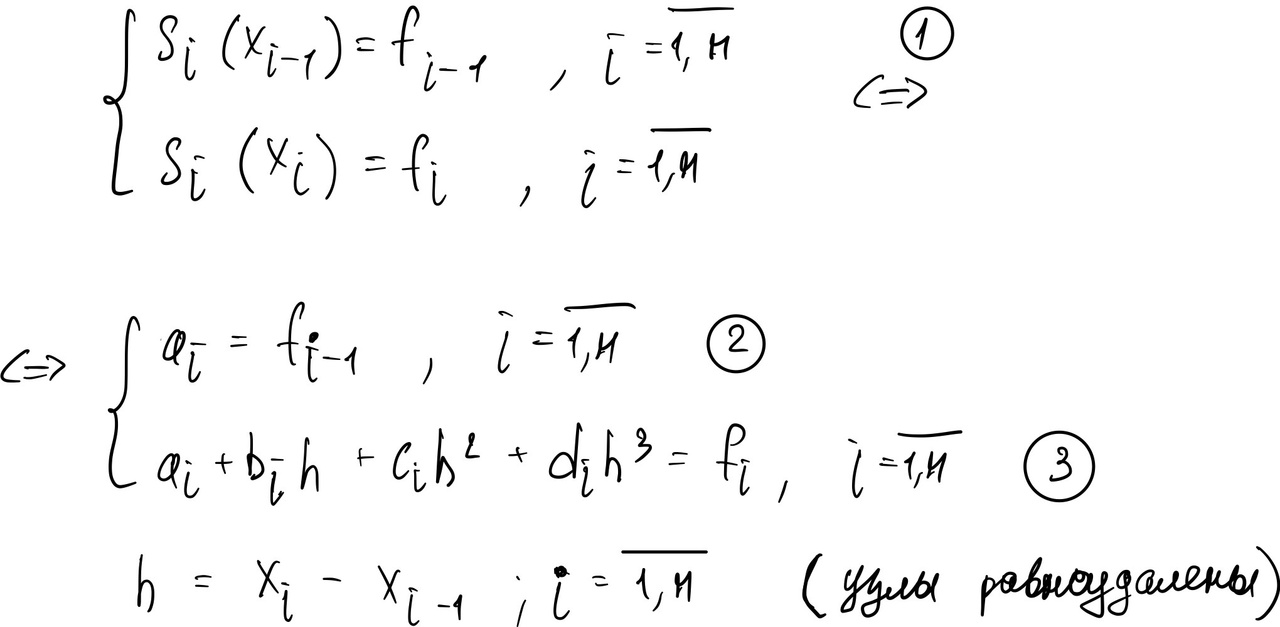 { Sᵢ (xᵢ₋₁) = fᵢ₋₁ , i = \overline{1, н} ①
Sᵢ (xᵢ) = fᵢ , i = \overline{1, н} <=>
<=> { aᵢ = fᵢ₋₁ , i = \overline{1, н} ②
aᵢ + bᵢh + cᵢh² + dᵢh³ = fᵢ , i = \overline{1, н} ③
h = xᵢ - xᵢ₋₁ ; i = \overline{1, н} (узлы равноудалены)